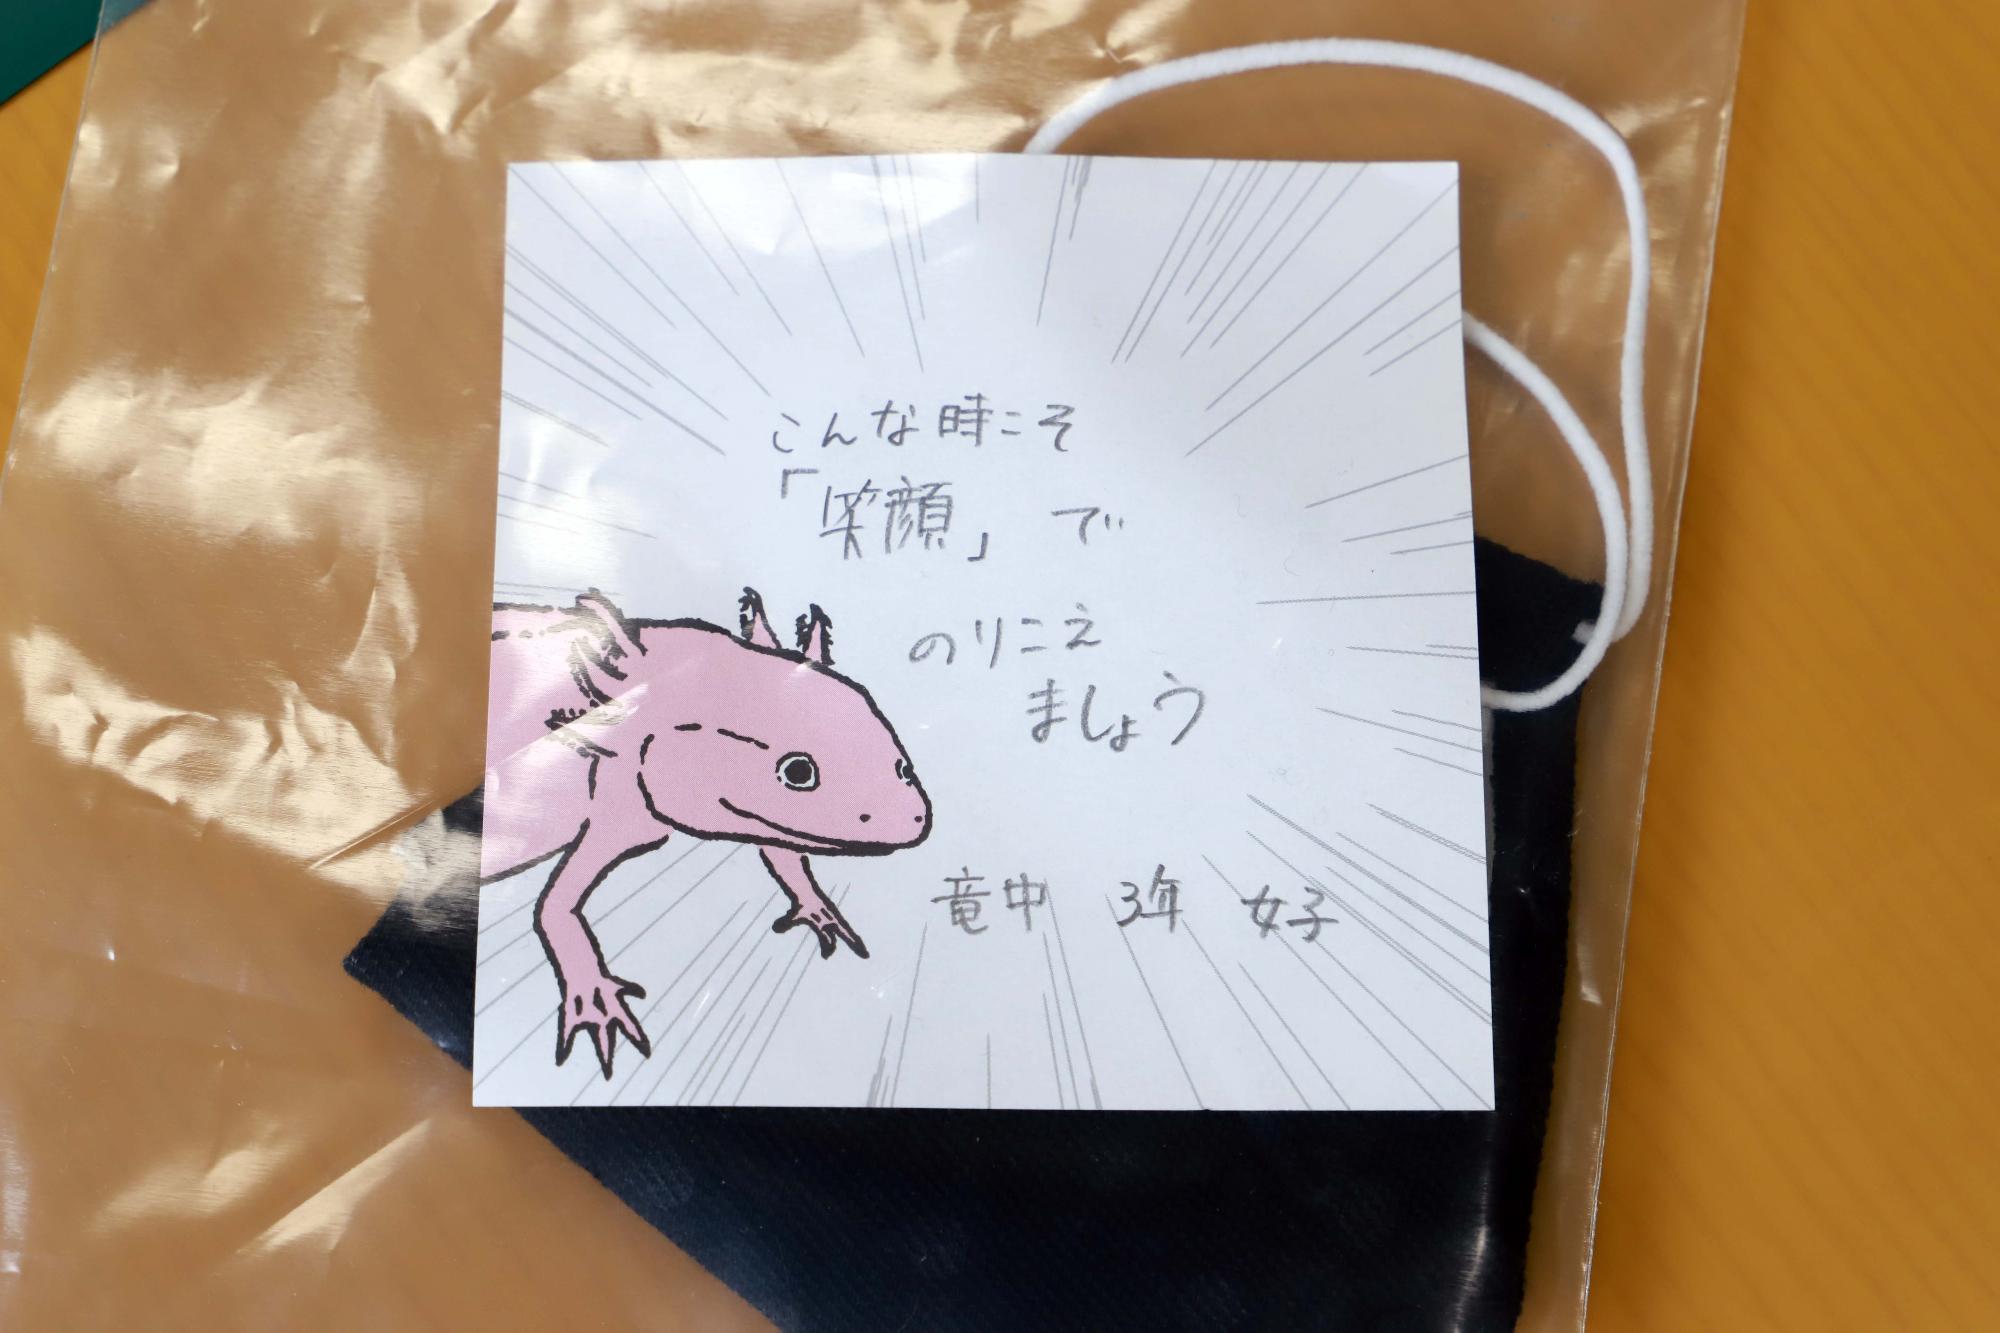 こんな時こそ
「笑顔」で
のりこえ
ましょう
竜中 3年 女子